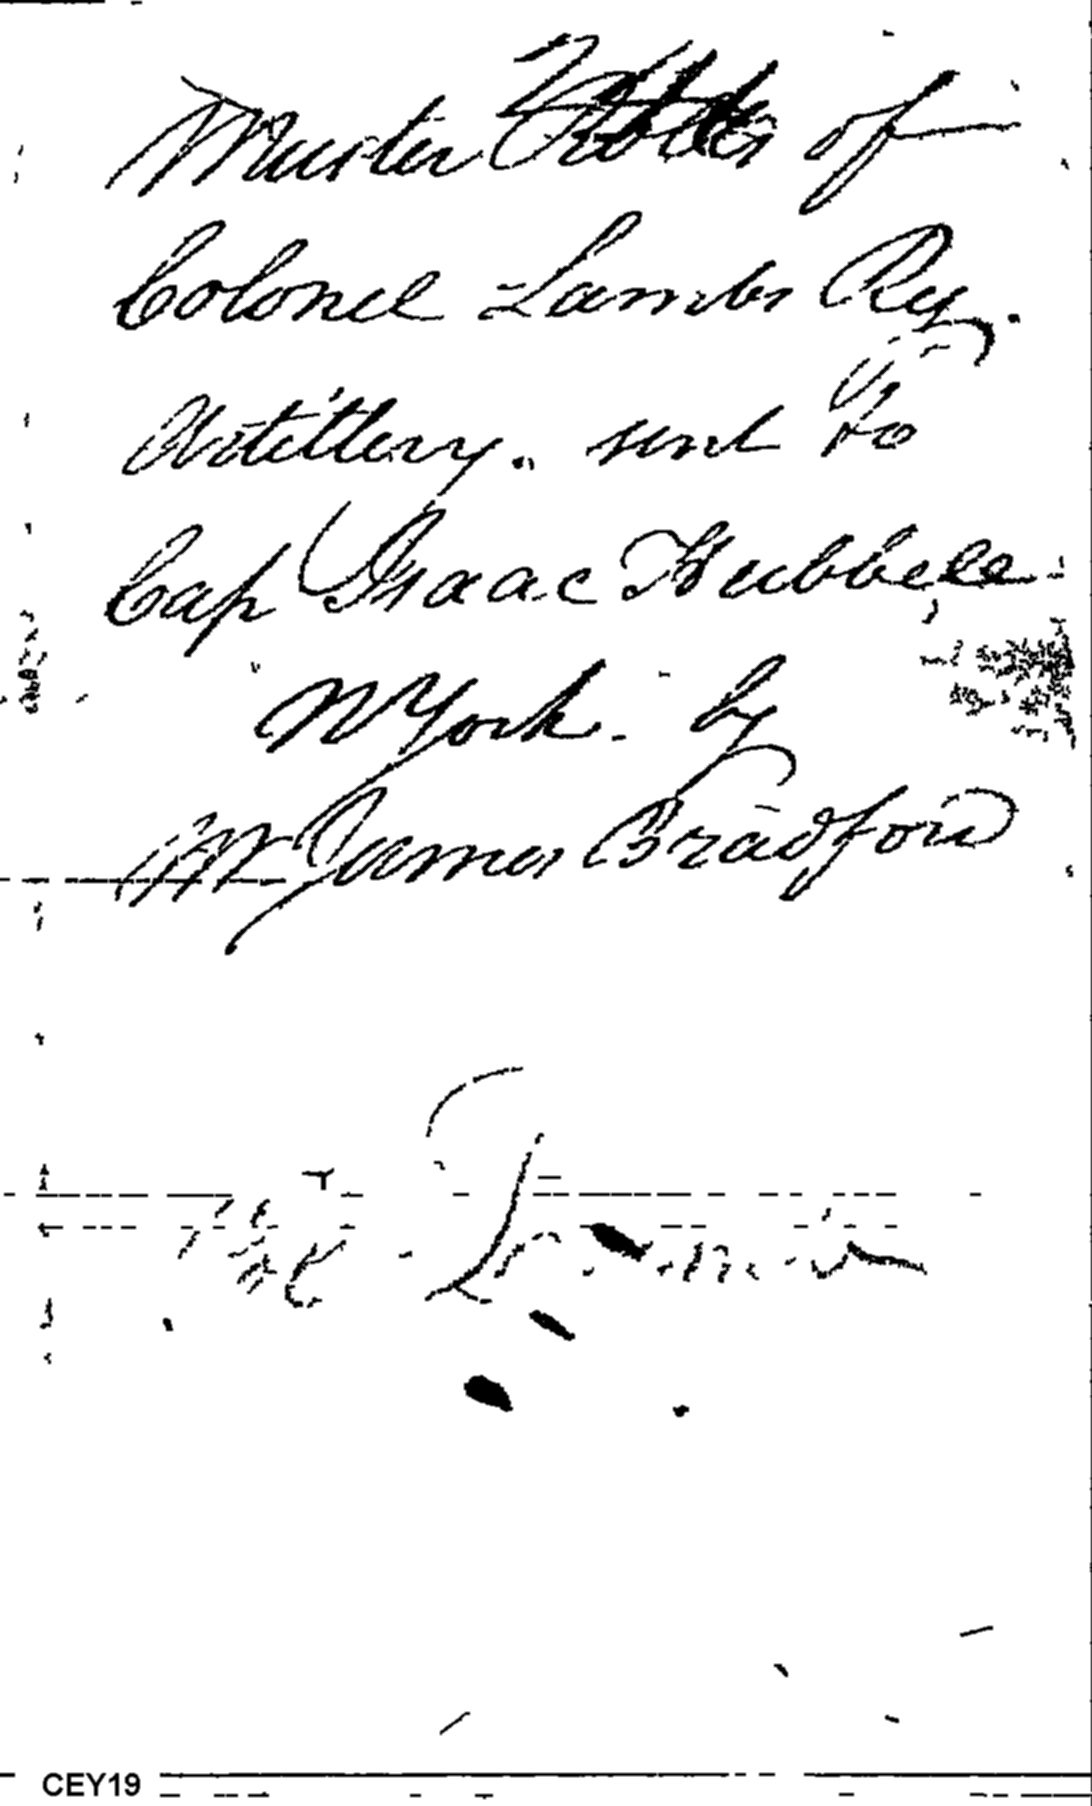 Muster Rolls of
Colonel Lambs Reg.
Artillery. sent to
Cap Isaac Hubbell
N York. by
Mr James Bradford
CEY19